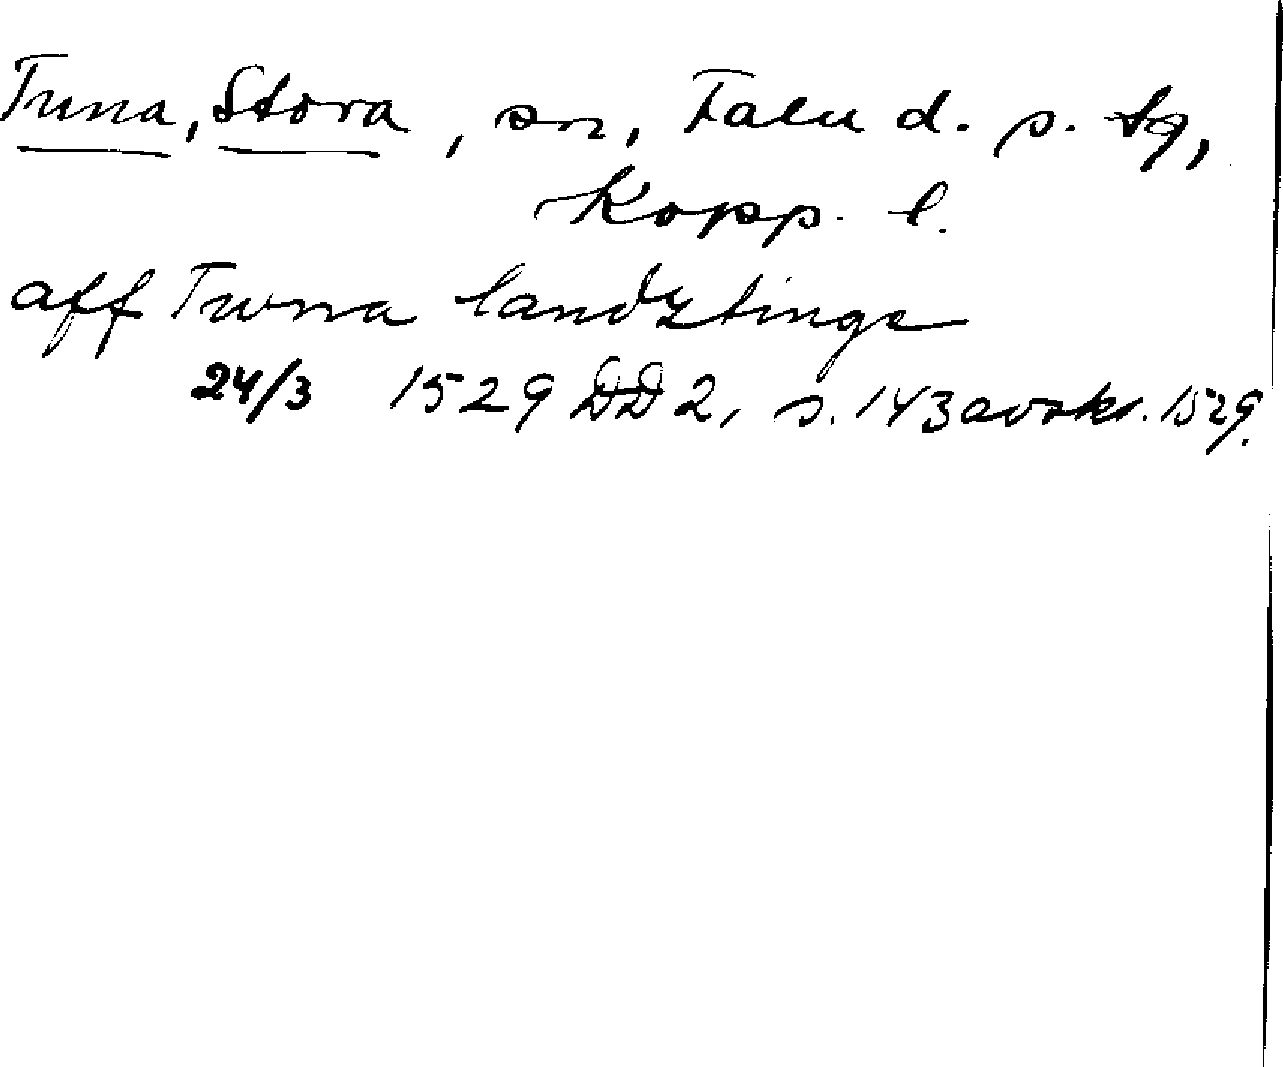 Tuna, Stora, sn, Falu d. s. tg,
Kopp. l.
aff Twna landztinge
24/3 1529 DD 2, s. 143 avskr. 1529.